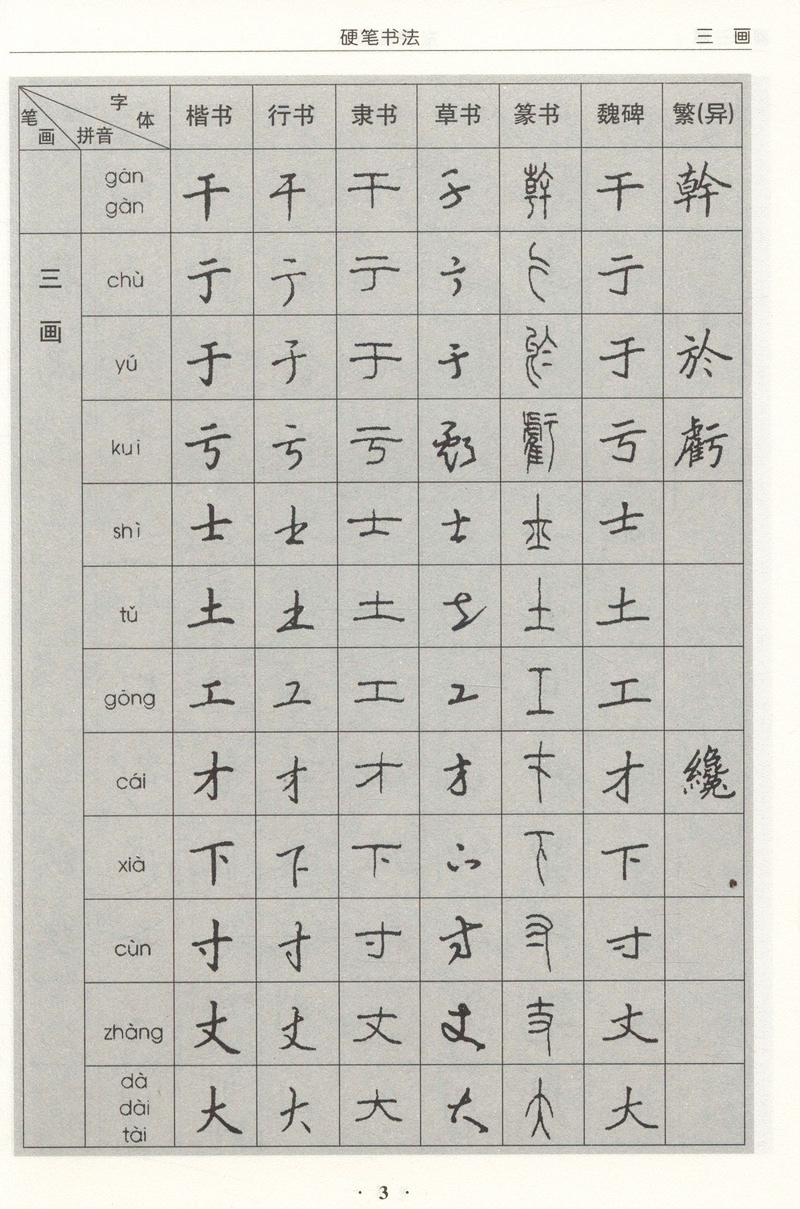 硬笔书法 三 画
字 体 笔 画 拼音 楷书 行书 隶书 草书 篆书 魏碑 繁(异)
gān gàn 干 干 干 干 幹 干 幹
三画
chù 亍 亍 亍 亍 亍 亍
yú 于 于 于 于 于 于 於
kuī 亏 亏 亏 亏 虧 亏 虧
shì 士 士 士 士 士 士
tǔ 土 土 土 土 土 土
gōng 工 工 工 工 工 工
cái 才 才 才 才 才 才 纔
xià 下 下 下 下 下 下
cùn 寸 寸 寸 寸 寸 寸
zhàng 丈 丈 丈 丈 丈 丈
dà dài tài 大 大 大 大 大 大
· 3 ·